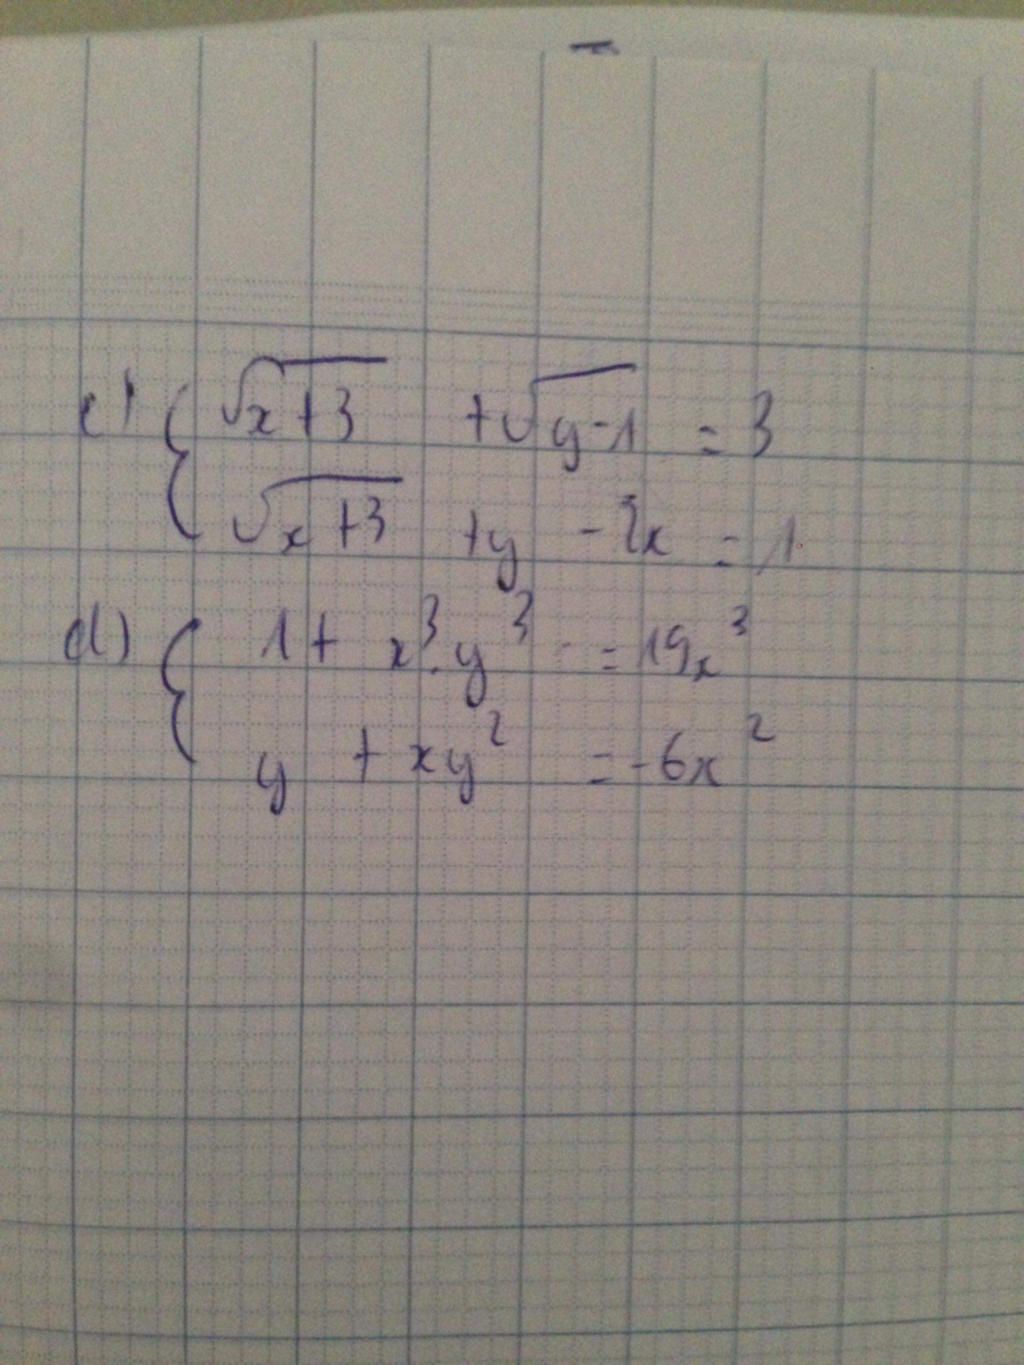 c) { √(x+3) + √(y-1) = 3
√(x+3) + y - 2x = 1
d) { 1 + x³.y³ = 19x³
y + xy² = -6x²